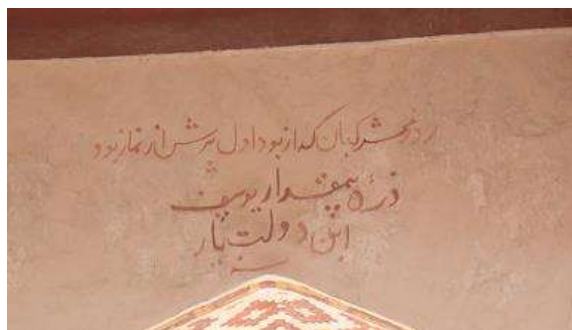 روز محشر کجان کداز بود اول پرسش از نماز بود
ذره بیمقدار یوسف
ابن دولت یار